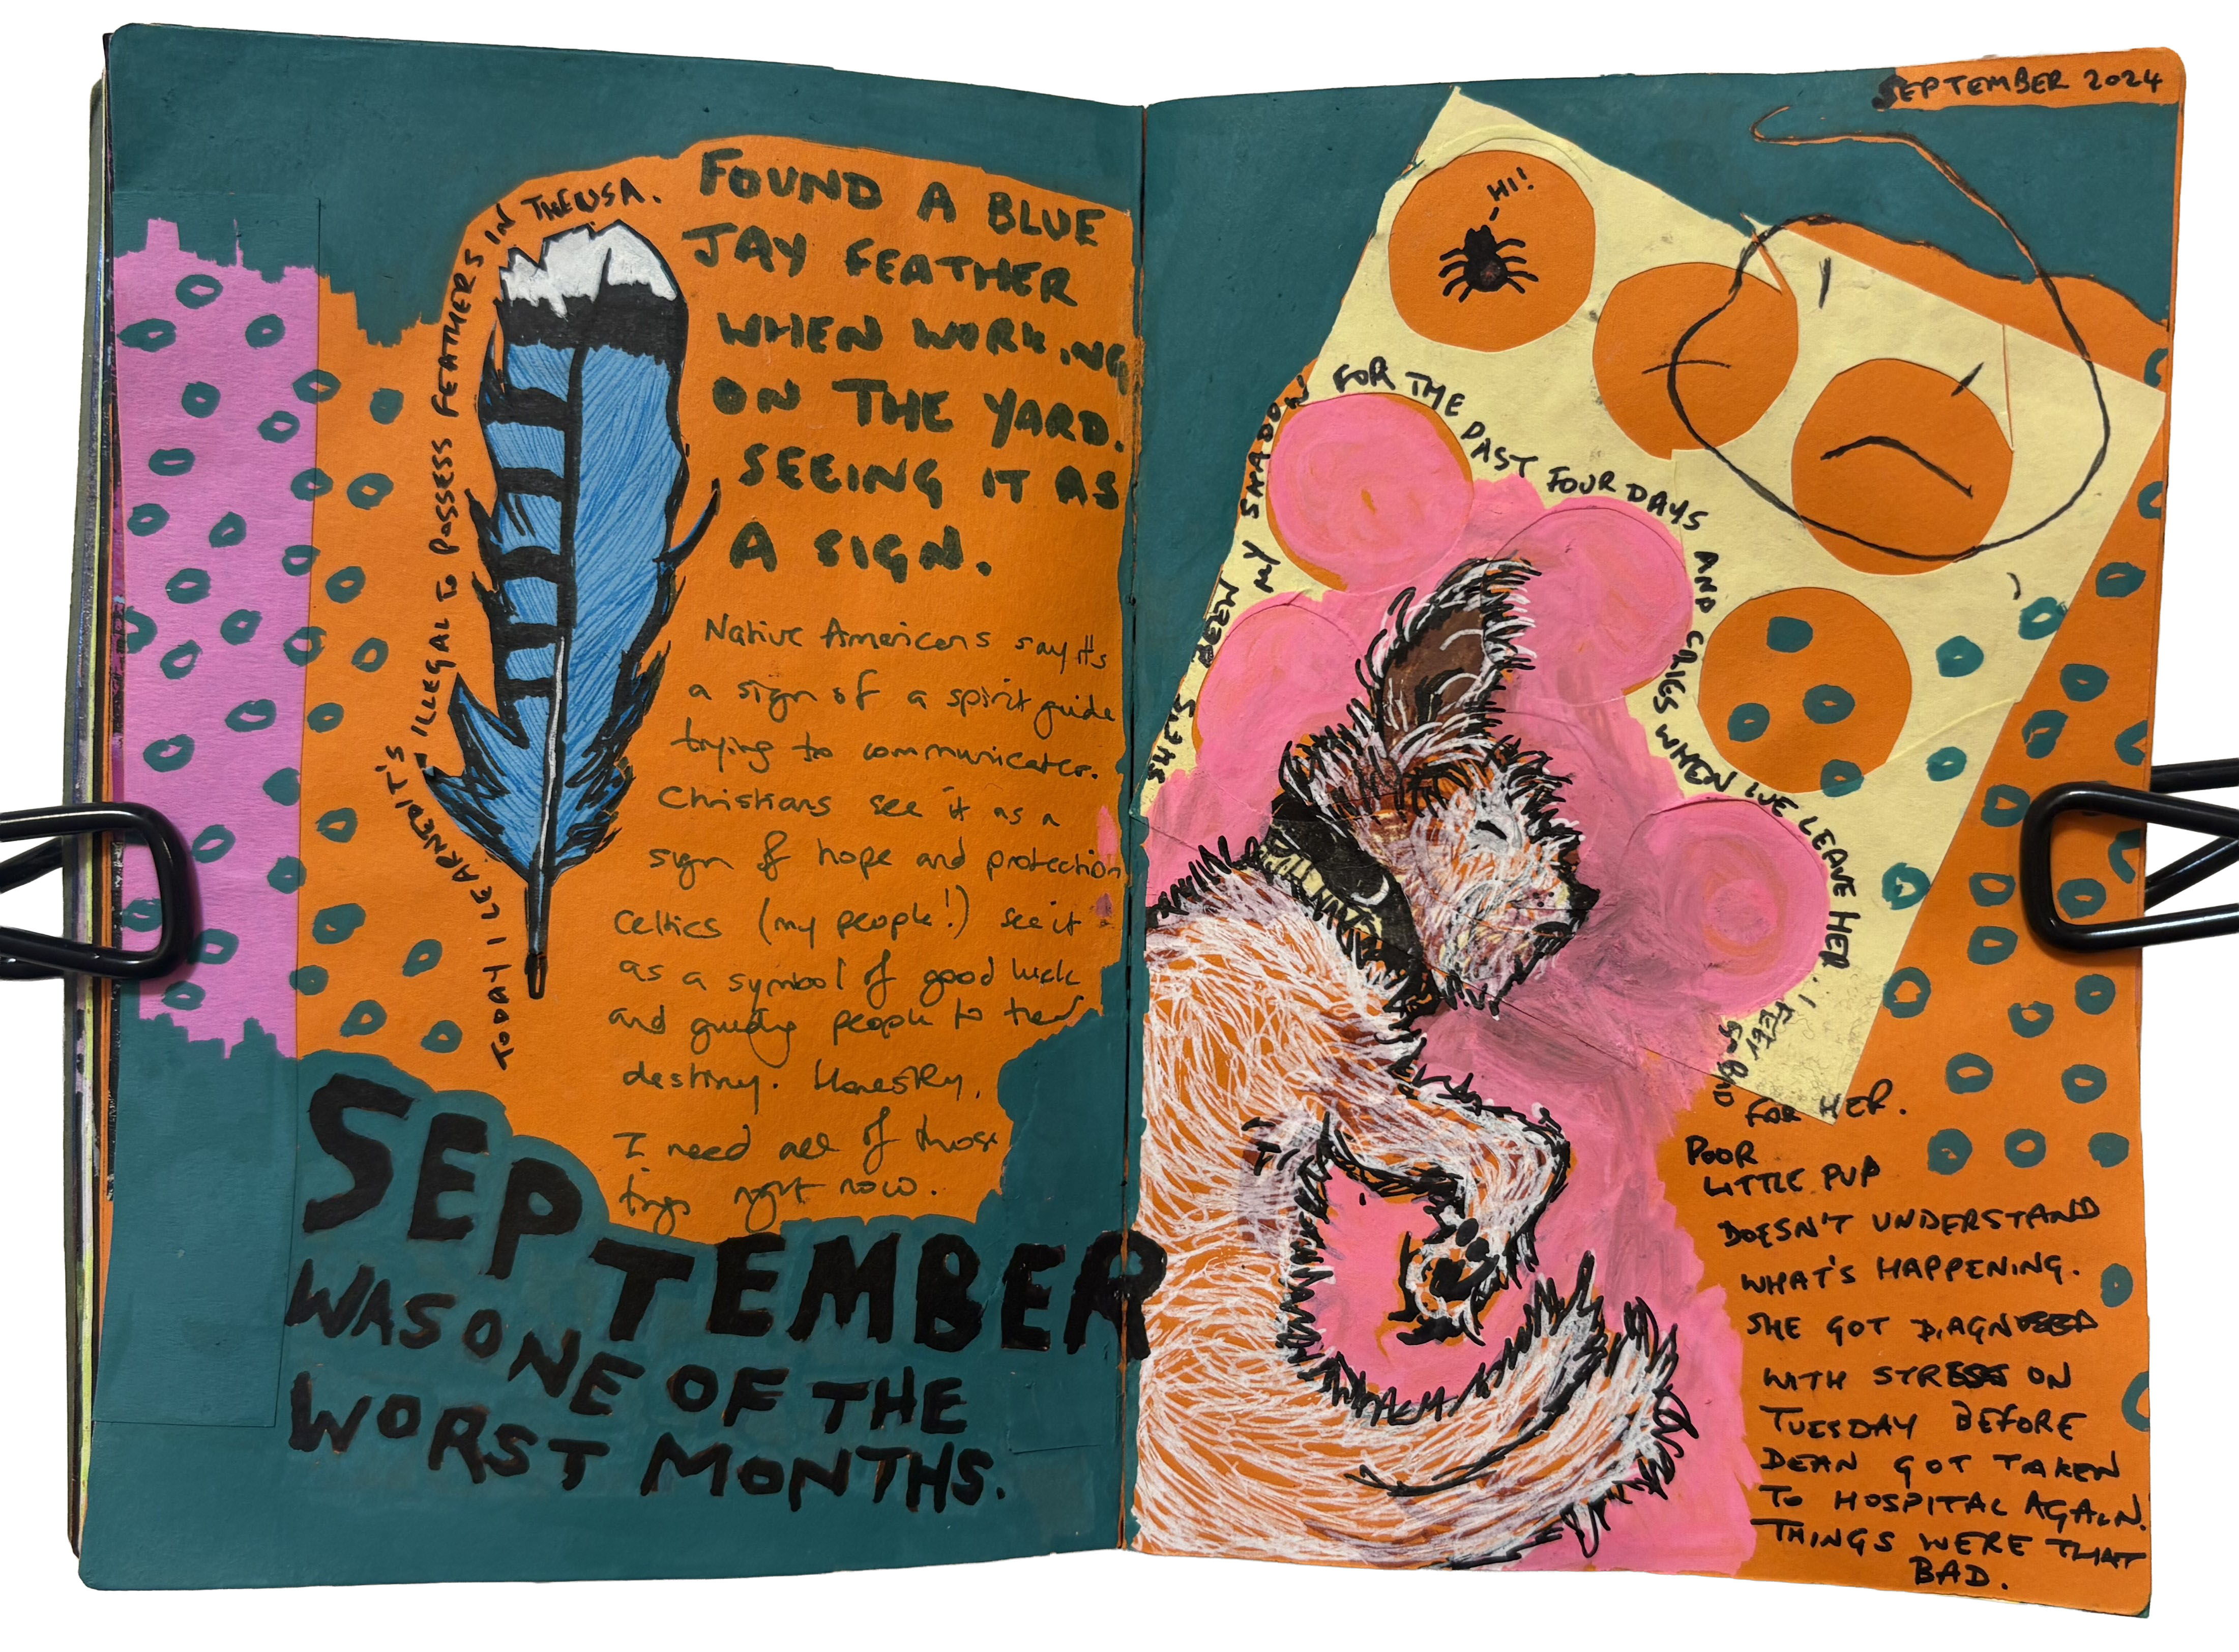 FOUND A BLUE
JAY FEATHER
WHEN WORKING
ON THE YARD.
SEEING IT AS
A SIGN.
TODAY I LEARNED IT'S ILLEGAL TO POSSESS FEATHERS IN THE USA.
Native Americans say it's
a sign of a spirit guide
trying to communicate.
Christians see it as a
sign of hope and protection
Celtics (my people!) see it
as a symbol of good luck
and guiding people to their
destiny. Honestly,
I need all of those
right now.
SEPTEMBER
WAS ONE OF THE
WORST MONTHS.
SEPTEMBER 2024
HI!
SHE'S BEEN MY SHADOW FOR THE PAST FOUR DAYS AND CRIES WHEN WE LEAVE HER. I FEEL
SO BAD
FOR HER.
POOR
LITTLE PUP
DOESN'T UNDERSTAND
WHAT'S HAPPENING.
SHE GOT DIAGNOSED
WITH STRESS ON
TUESDAY BEFORE
DEAN GOT TAKEN
TO HOSPITAL AGAIN.
THINGS WERE THAT
BAD.